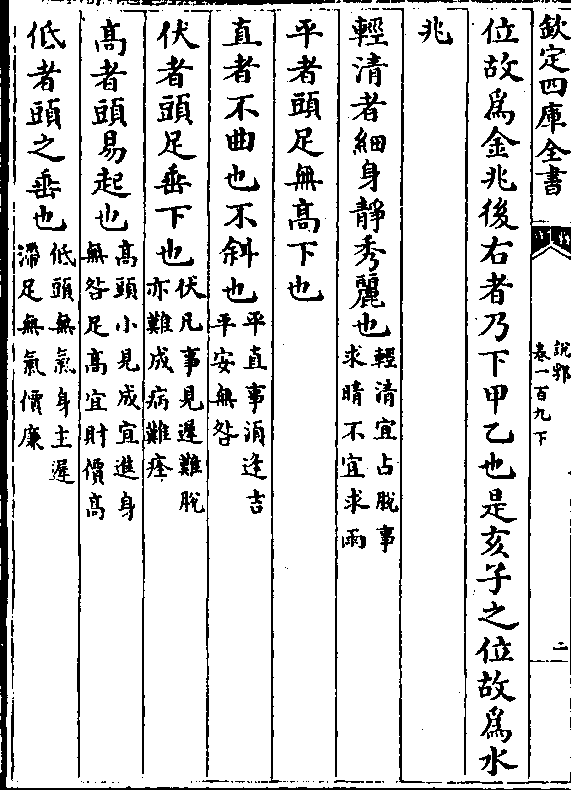 欽定四庫全書
說郛
卷一百九下
二
位故爲金兆後右者乃下甲乙也是亥子之位故爲水
兆
輕清者細身靜秀麗也輕清宜占脫事
求晴不宜求雨
平者頭足無高下也
直者不曲也不斜也平直事須逢吉
平安無咎
伏者頭足垂下也伏凡事見遲難脫
亦難成病難痊
高者頭易起也高頭小見成宜進身
無咎足高宜財價高
低者頭之垂也低頭無氣身主遲
滯足無氣價廉